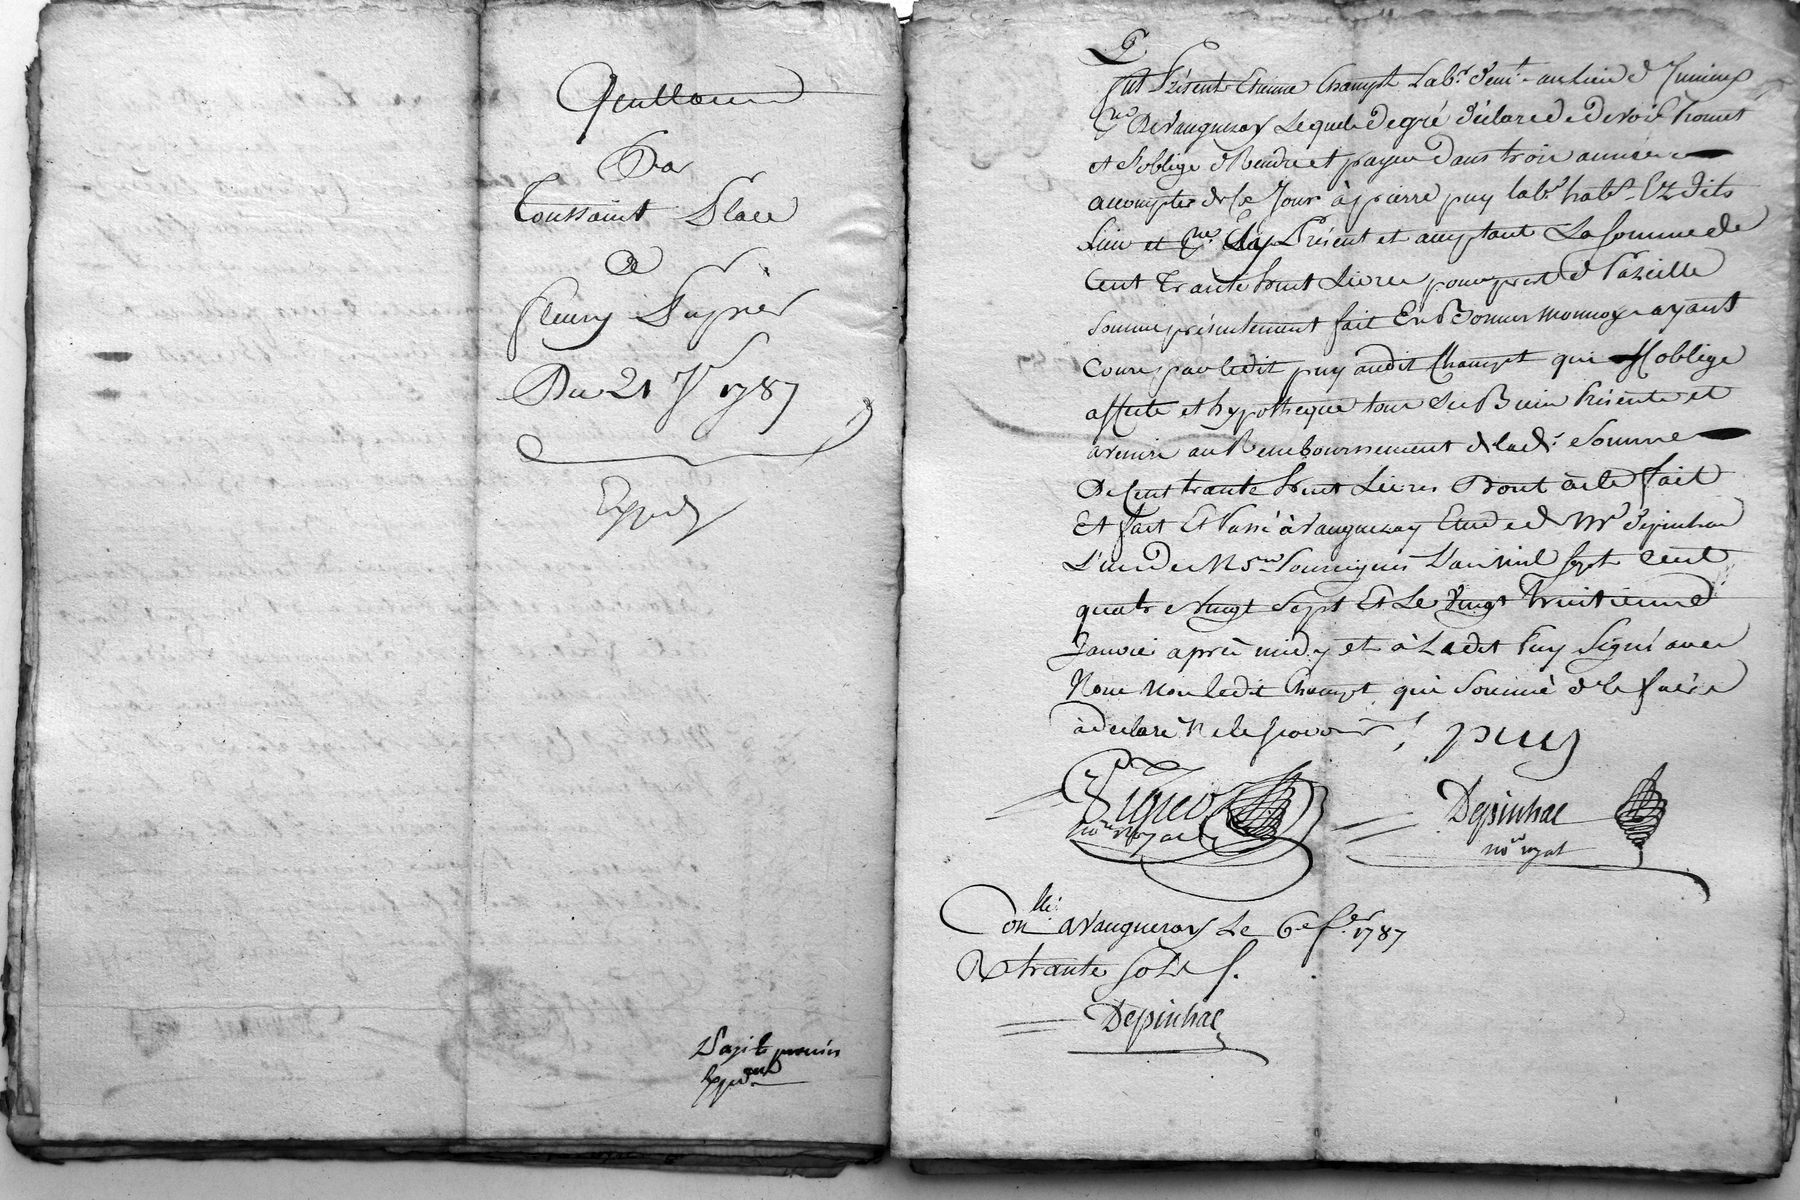 Quittance
Par
Toussaint Place
à
fleury Dupuier
Du 21 1787
Expedé
Payé le premier
Expedon
fut Présent Etienne Champt Lab.r demt. au lieu de
p.sse De Vaugneray Lequel de gré déclare de devoir Promet
et s'oblige de Rendre et payer Dans trois années
a compter de Ce Jour à pierre puy lab.r habt. Ez dits
Lieu et p.sse Ley Présent et acceptant La Somme de
Cent Trante huit Livres pour prest de Pareille
Somme présentement fait En Bonne monnoye ayant
Cours par ledit puy audit Champt qui S'oblige
affecte et hypotheque tous Ses Biens Présents et
avenir au Remboursement de lad.e Somme
De Cent trante huit Livres Dont acte fait
Et fait Et Passé à Vaugneray Etude de Mr Depinhac
L'un de N Soussignés L'an Mil Sept Cent
quatre Vingt Sept Et Le Vingt huitieme
Janvier après midy et à Ledit Puy Signé avec
Nous Non ledit Champt qui Sommé de le faire
à declaré Ne le Sçavoir / puy
Depinhac
no.re royal no.re royal
Con.llé a Vaugneray Le 6e f.er 1787
R trante Sols
Depinhac